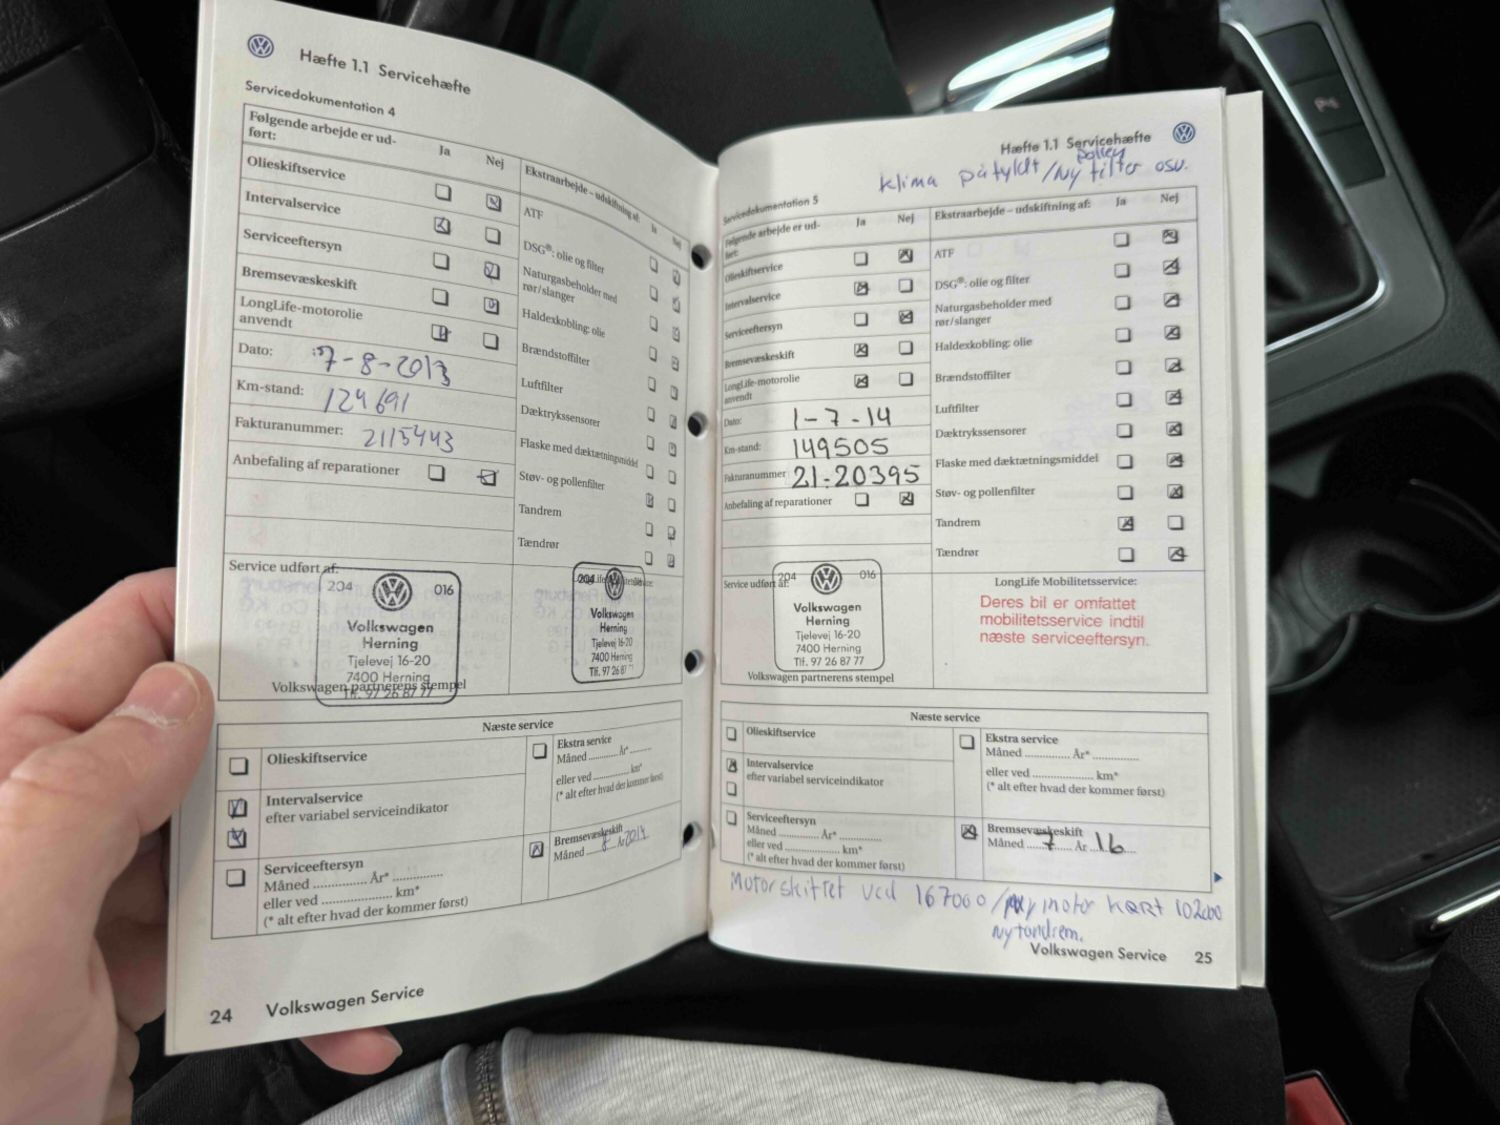 Hæfte 1.1 Servicehæfte
Servicedokumentation 4
Følgende arbejde er ud-
ført:
Ja
Nej
Olieskiftservice
Intervalservice
Serviceeftersyn
Bremsevæskeskift
LongLife-motorolie
anvendt
Dato: 7-8-2013
Km-stand: 124691
Fakturanummer: 2115443
Anbefaling af reparationer
Ekstraarbejde – udskiftning af:
Ja
Nej
ATF
DSG®: olie og filter
Naturgasbeholder med
rør/slanger
Haldexkobling: olie
Brændstoffilter
Luftfilter
Dæktrykssensorer
Flaske med dæktætningsmiddel
Støv- og pollenfilter
Tandrem
Tændrør
Service udført af:
204 016
Volkswagen
Herning
Tjelevej 16-20
7400 Herning
Tlf. 97 26 87 77
Volkswagen partnerens stempel
204
Volkswagen
Herning
Tjelevej 16-20
7400 Herning
Tlf. 97 26 87
Næste service
Olieskiftservice
Intervalservice
efter variabel serviceindikator
Serviceeftersyn
Måned .............. År* ..............
eller ved .................... km*
(* alt efter hvad der kommer først)
Ekstra service
Måned ............ År* .........
eller ved .................. km*
(* alt efter hvad der kommer først)
Bremsevæskeskift
Måned 8 År 2014
24 Volkswagen Service
Hæfte 1.1 Servicehæfte
pollen
klima påfyldt/Ny filter osv.
Servicedokumentation 5
Følgende arbejde er ud-
ført:
Ja
Nej
Olieskiftservice
Intervalservice
Serviceeftersyn
Bremsevæskeskift
LongLife-motorolie
anvendt
Dato: 1-7-14
Km-stand: 149505
Fakturanummer 21-20395
Anbefaling af reparationer
Ekstraarbejde – udskiftning af:
Ja
Nej
ATF
DSG®: olie og filter
Naturgasbeholder med
rør/slanger
Haldexkobling: olie
Brændstoffilter
Luftfilter
Dæktrykssensorer
Flaske med dæktætningsmiddel
Støv- og pollenfilter
Tandrem
Tændrør
Service udført af:
204 016
Volkswagen
Herning
Tjelevej 16-20
7400 Herning
Tlf. 97 26 87 77
Volkswagen partnerens stempel
LongLife Mobilitetsservice:
Deres bil er omfattet
mobilitetsservice indtil
næste serviceeftersyn.
Næste service
Olieskiftservice
Intervalservice
efter variabel serviceindikator
Serviceeftersyn
Måned .............. År* ..............
eller ved .................... km*
(* alt efter hvad der kommer først)
Ekstra service
Måned .............. År* ..............
eller ved .................... km*
(* alt efter hvad der kommer først)
Bremsevæskeskift
Måned 7 År 16
Motor skiftet ved 167000/Ny motor kørt 102000
Ny tandrem.
Volkswagen Service 25